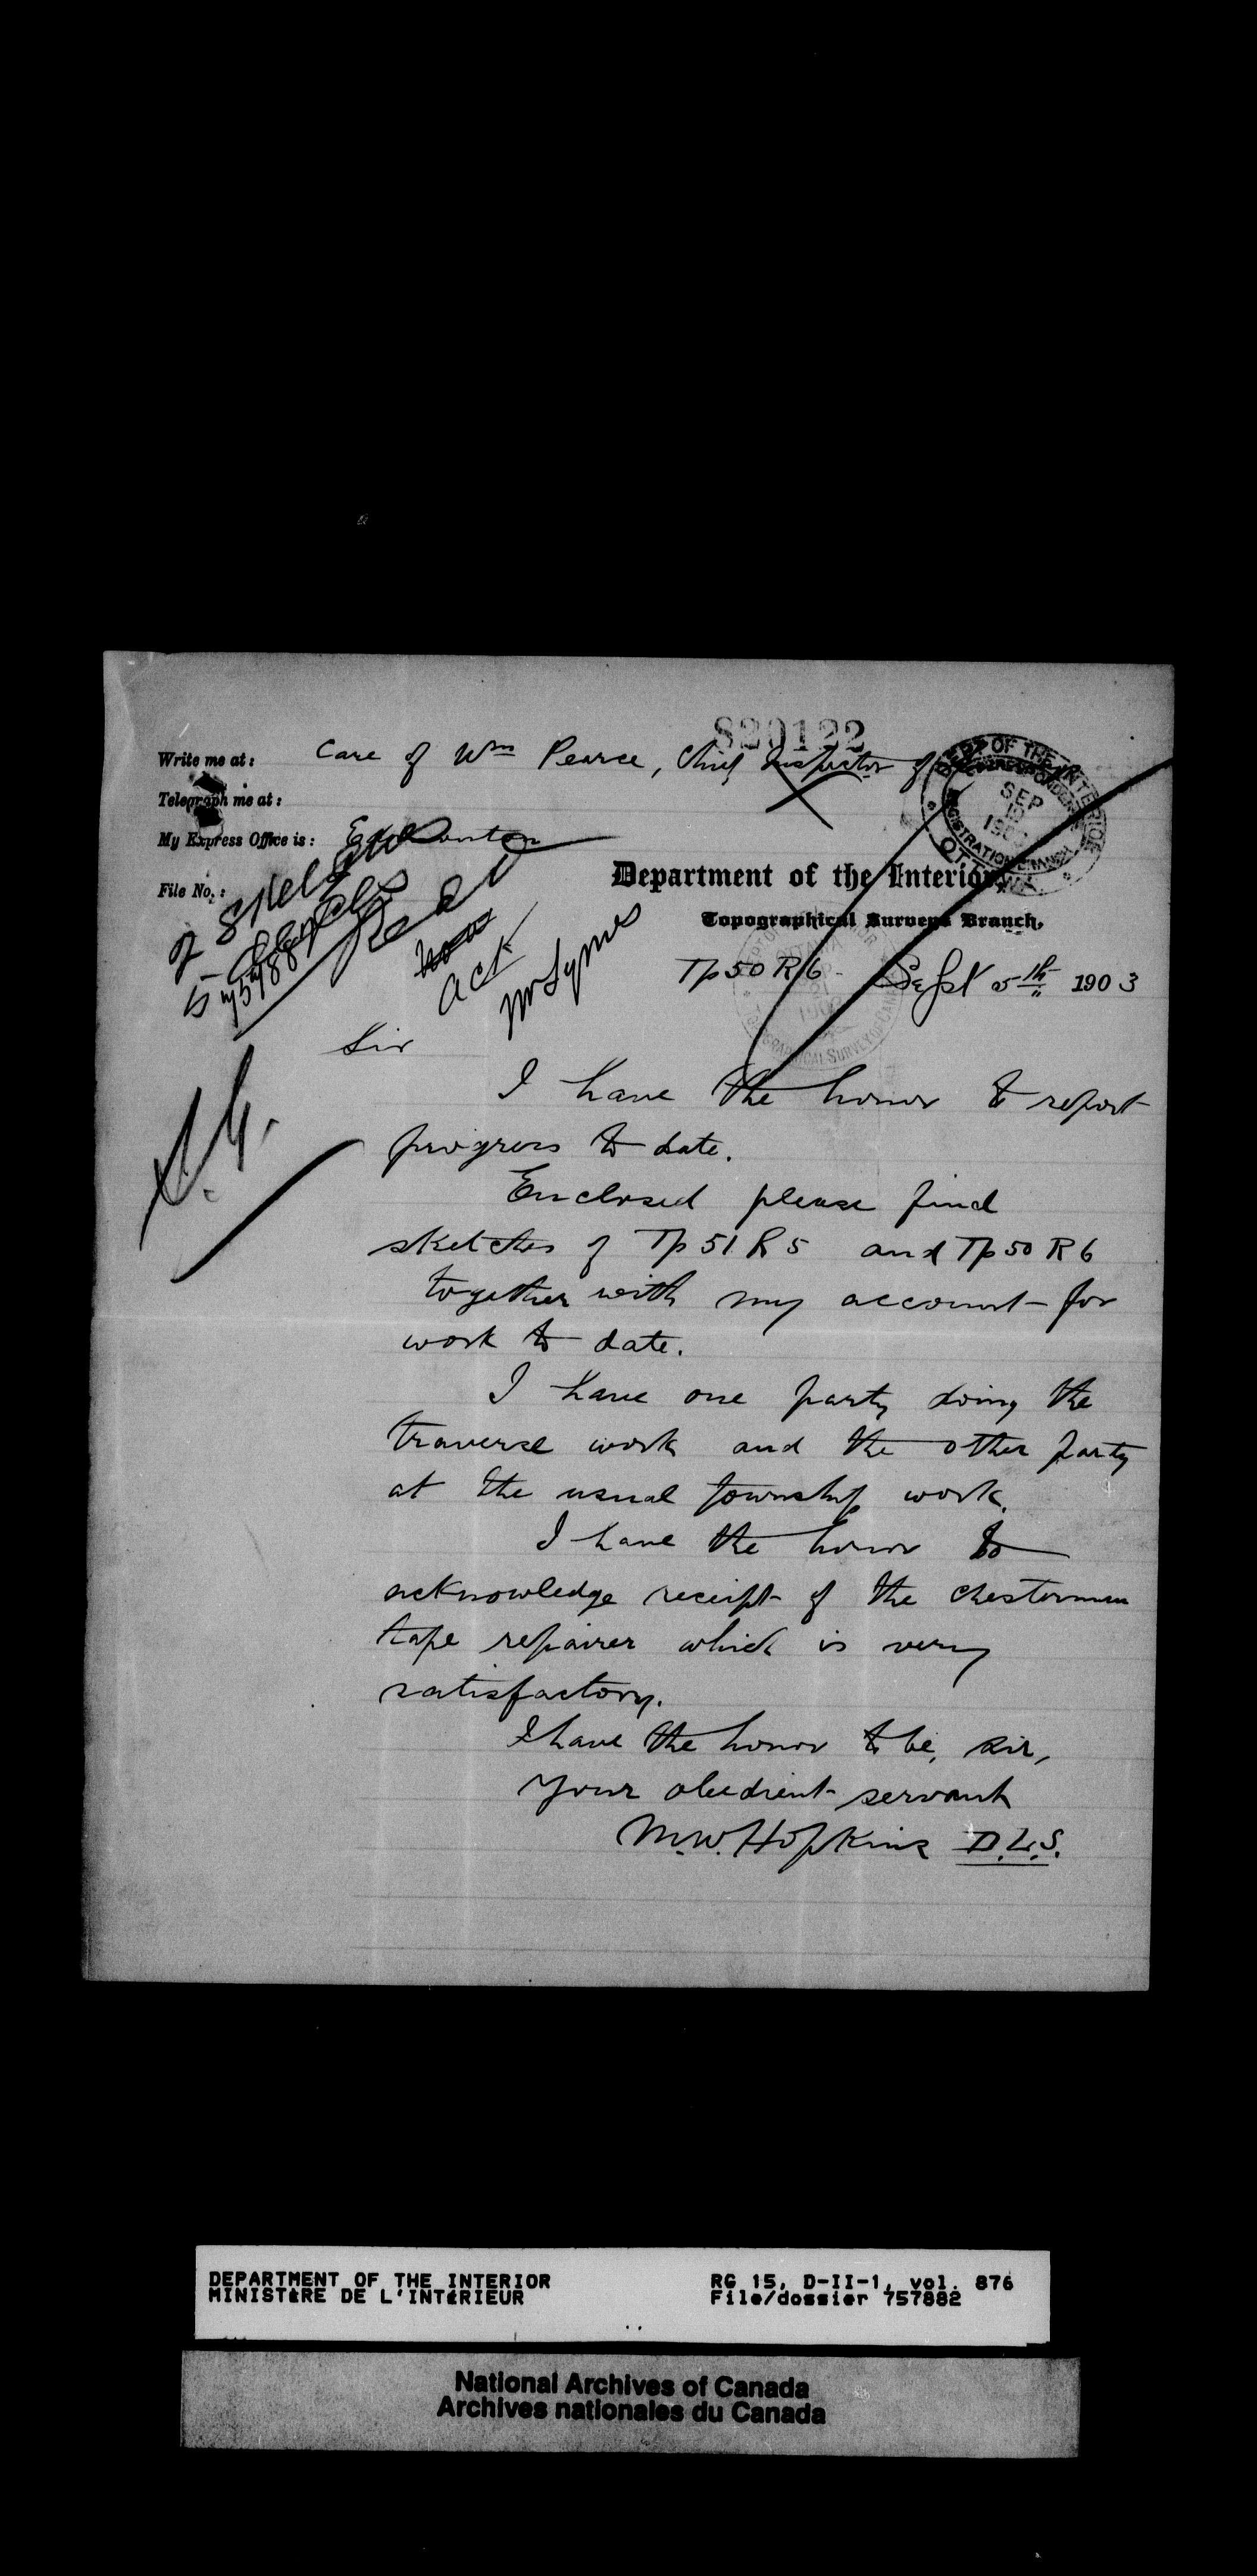 820122
Write me at: Care of Wm Pearce, Chief Inspector of
Telegraph me at:
My Express Office is: Edmonton
File No.:
DEPT OF THE INTERIOR
CORRESPONDENCE
SEP
190
REGISTRATION BRANCH
OTTAWA
Department of the Interior,
Topographical Surveys Branch,
Tp 50 R 6 - Sept 5th 1903
2 Sketches
Read
Ack
Mr Symes
Sir
I have the honor to report
progress to date.
Enclosed please find
sketches of Tp 51 R 5 and Tp 50 R 6
together with my account for
work to date.
I have one party doing the
traverse work and the other party
at the usual township work.
I have the honor to
acknowledge receipt of the chesterman
tape repairer which is very
satisfactory.
I have the honor to be, sir,
Your obedient servant
M.W. Hopkins D.L.S.
DEPARTMENT OF THE INTERIOR RG 15, D-II-1, vol. 876
MINISTÈRE DE L'INTÉRIEUR File/dossier 757882
National Archives of Canada
Archives nationales du Canada